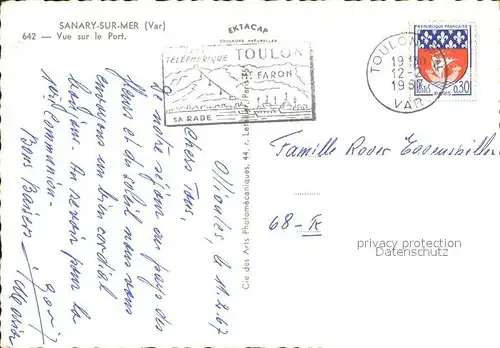 SANARY-SUR-MER (Var)
642 — Vue sur le Port.
EKTACAP
COULEURS NATURELLES
TÉLÉPHÉRIQUE TOULON
MT FARON
SA RADE
TOULON
12-2
VAR
REPUBLIQUE FRANÇAISE
0,30
PARIS
Cie des Arts Photomécaniques, 44, r.
Ollioules, le 11.2.67
Chers Tous,
De notre séjour au pays des
fleurs et du soleil nous vous
envoyons un bien cordial
bonjour. Au revoir pour la
Communion.
Bons Baisers
Famille Roger
68 -
privacy protection
Datenschutz